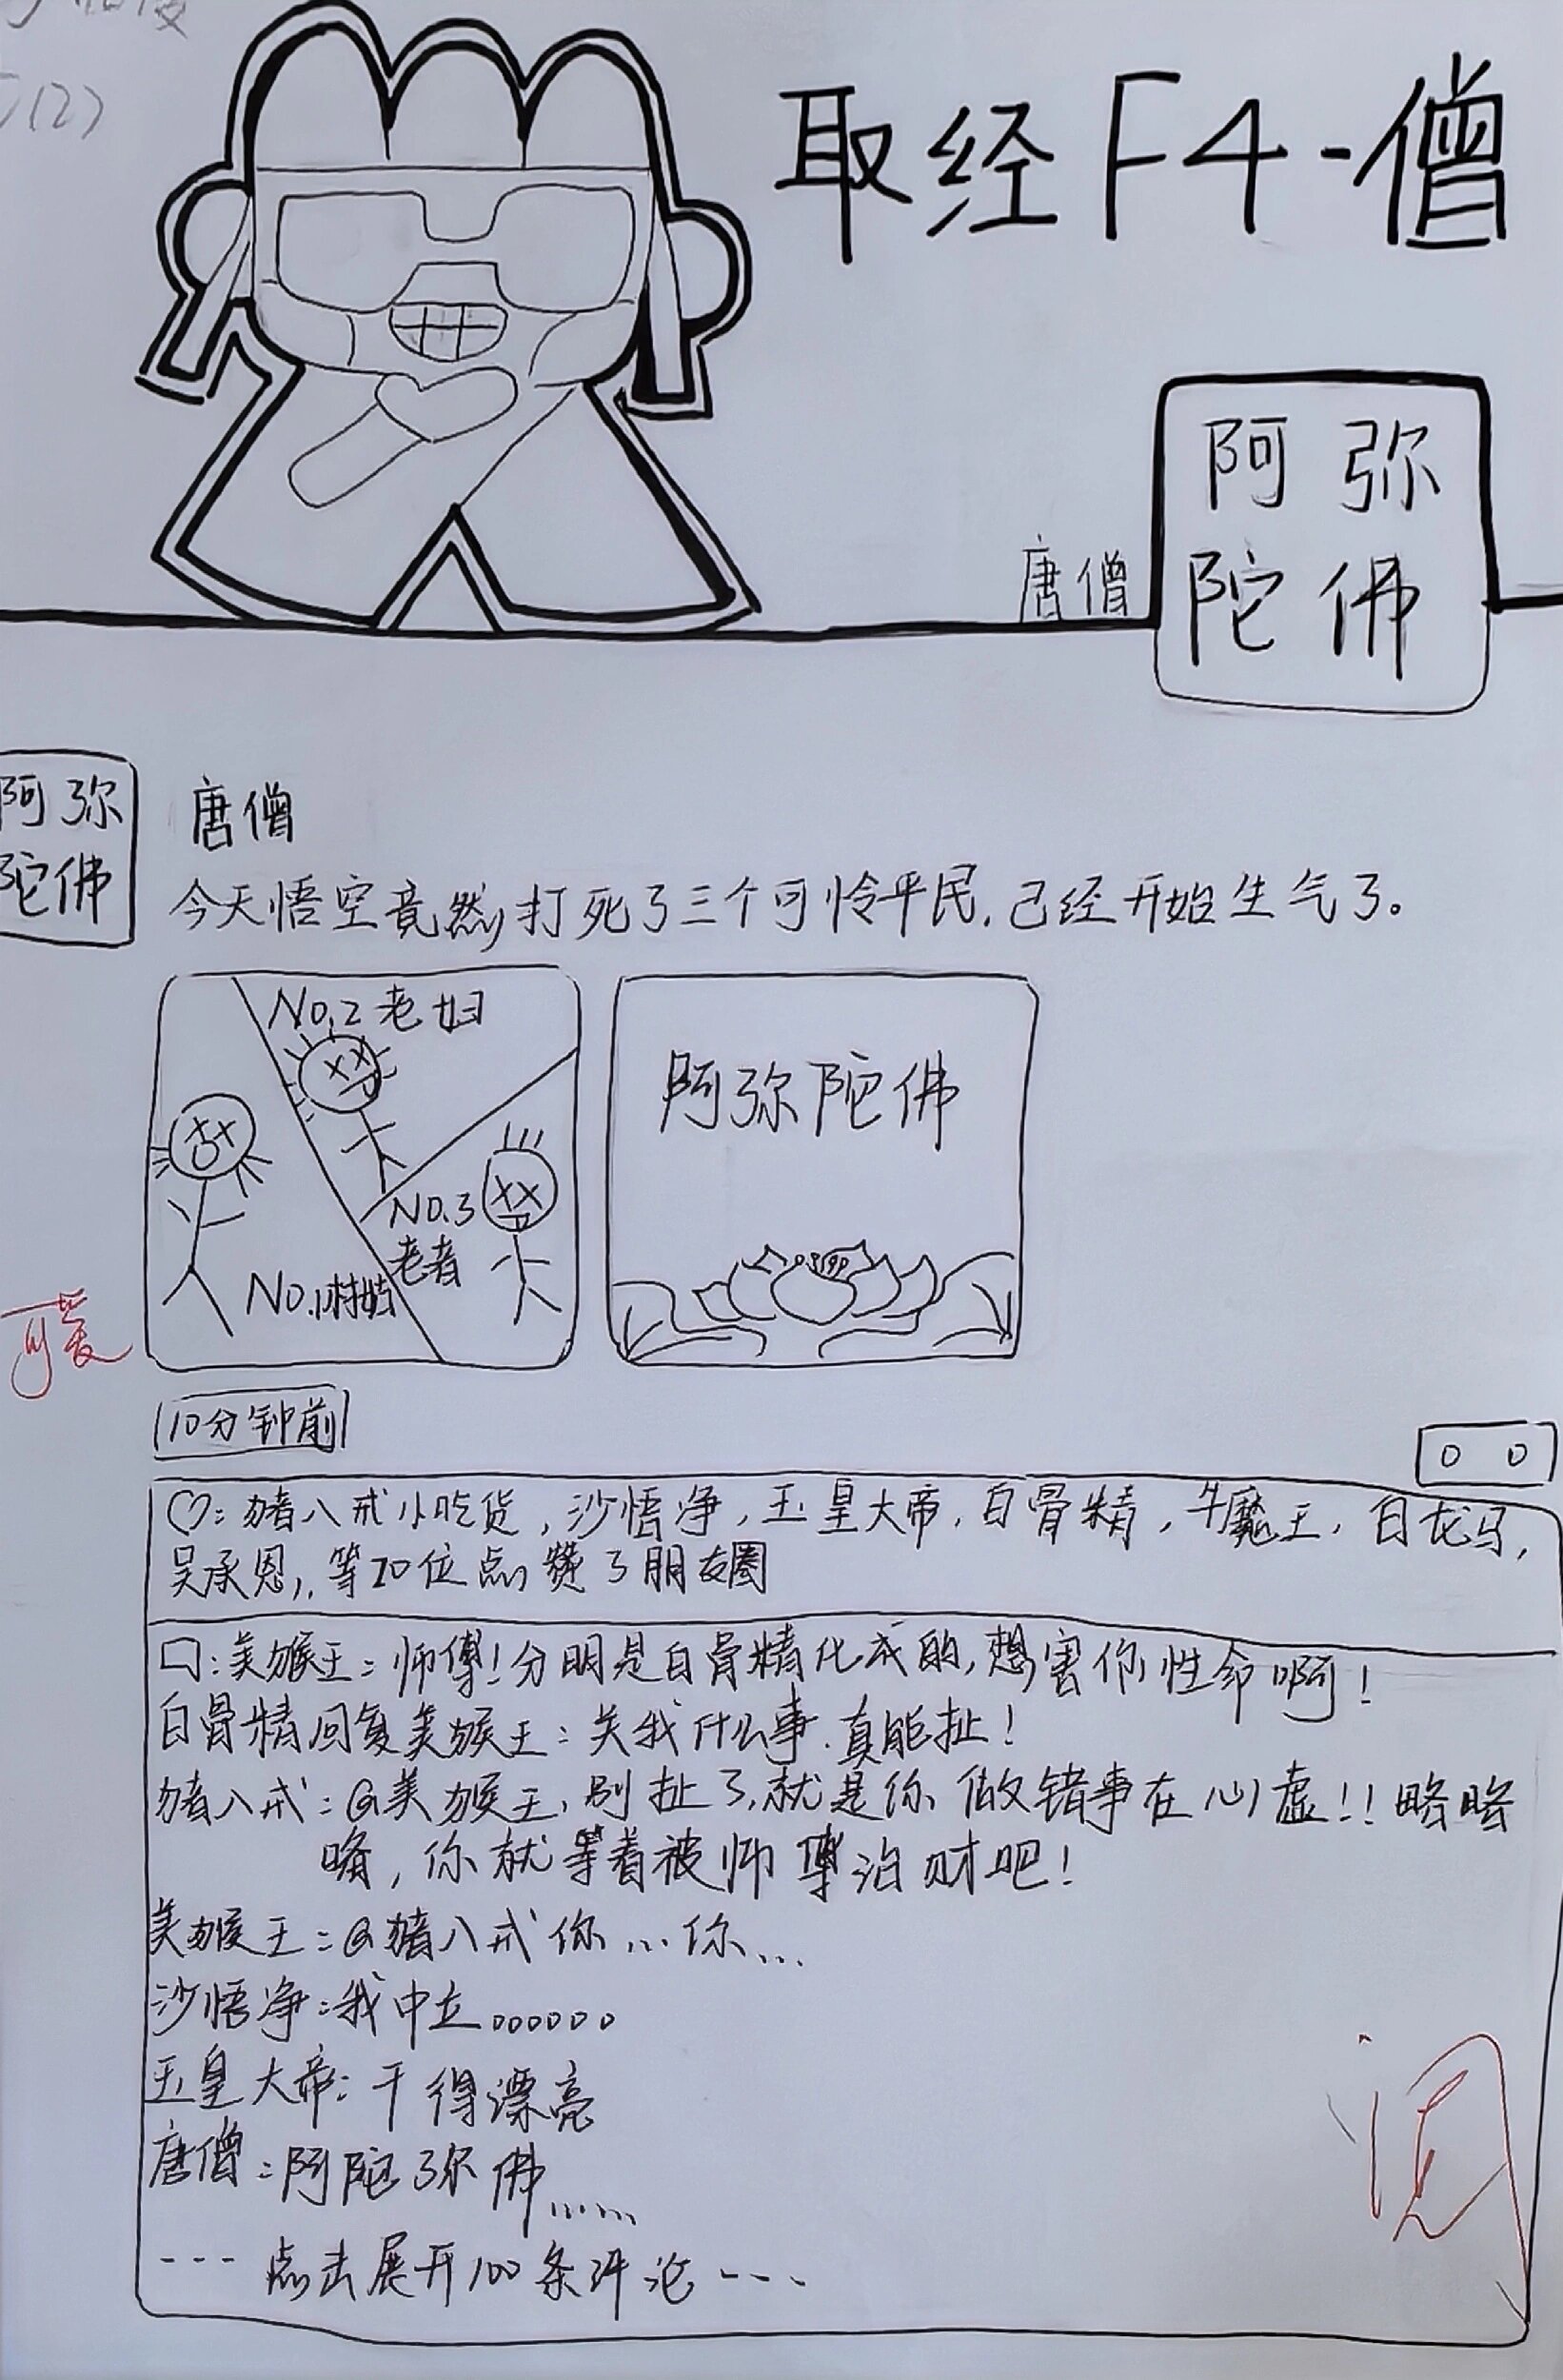 取经F4-僧
阿弥
陀佛
唐僧
阿弥
陀佛
唐僧
今天悟空竟然打死了三个可怜平民,已经开始生气了。
No.2老妇
No.3
老者
No.1村姑
阿弥陀佛
可爱
10分钟前
♡:猪八戒小吃货,沙悟净,玉皇大帝,白骨精,牛魔王,白龙马,
吴承恩,等20位点赞了朋友圈
口:美猴王:师傅!分明是白骨精化成的,想害你性命啊!
白骨精回复美猴王:关我什么事.真能扯!
猪八戒:@美猴王,别扯了,就是你做错事在心虚!!略略
略,你就等着被师傅治财吧!
美猴王:@猪八戒你...你...
沙悟净:我中立。。。。。。
玉皇大帝:干得漂亮
唐僧:阿陀弥佛......
---点击展开100条评论---
阅